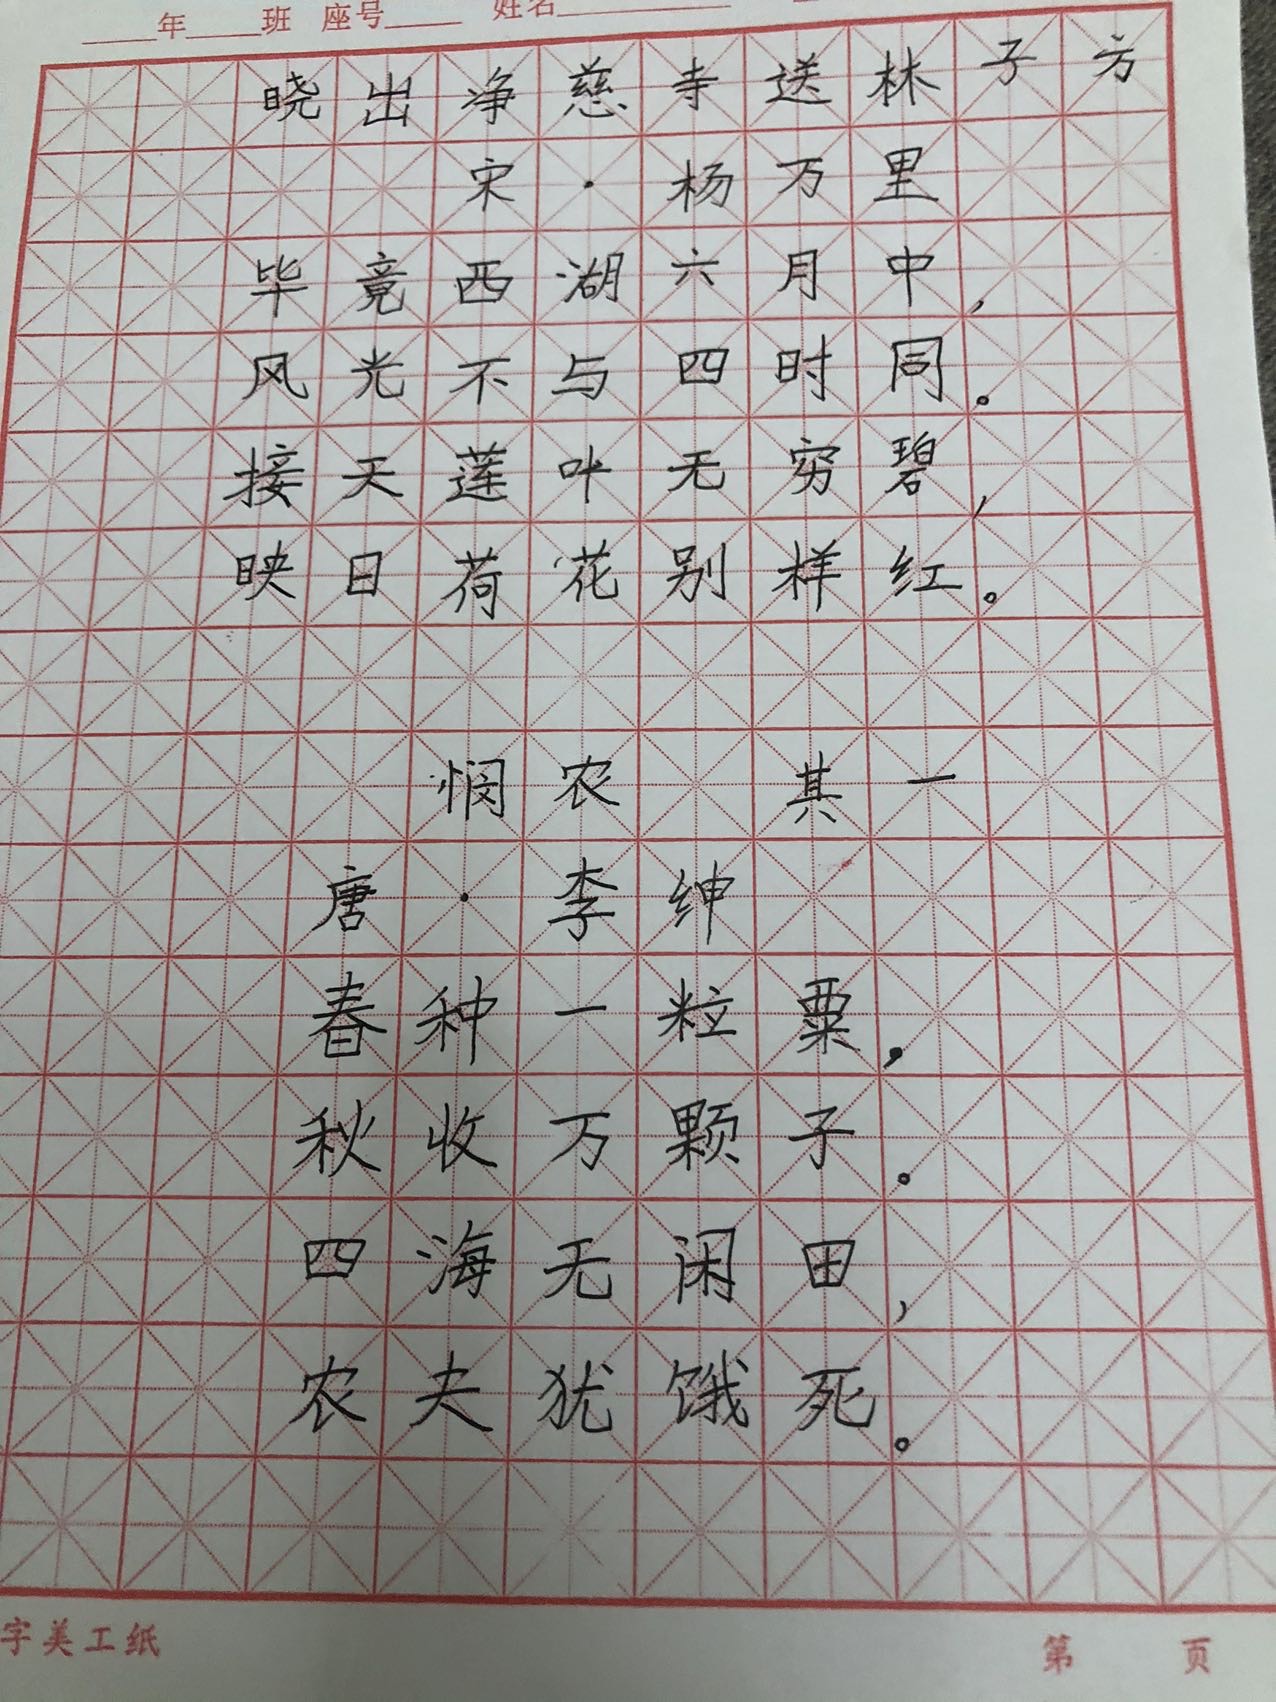 年 班 座号 姓名
晓出净慈寺送林子方
宋·杨万里
毕竟西湖六月中，
风光不与四时同。
接天莲叶无穷碧，
映日荷花别样红。
悯农 其一
唐·李绅
春种一粒粟，
秋收万颗子。
四海无闲田，
农夫犹饿死。
字美工纸
第 页